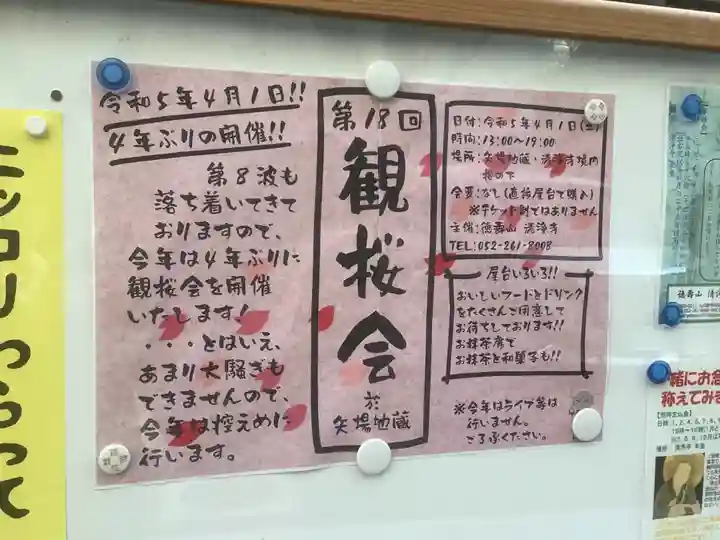 ニッコリわらって
令和5年4月1日!!
4年ぶりの開催!!
第8波も
落ち着いてきて
おりますので、
今年は4年ぶりに
観桜会を開催
いたします!
・・・とはいえ、
あまり大騒ぎも
できませんので、
今年は控えめに
行います。
第18回
観桜会
於
矢場地蔵
日付:令和5年4月1日(土)
時間:13:00〜19:00
場所:矢場地蔵・清浄寺境内
桜の下
会費:なし(直接屋台で購入)
※チケット制ではありません
主催:徳寿山 清浄寺
TEL:052-261-8008
屋台いろいろ!!
おいしいフードとドリンク
をたくさんご用意して
お待ちしております!!
お抹茶席で
お抹茶と和菓子も!!
※今年はライブ等は
行いません。
ごろぶください。
徳寿山 清
緒にお念
称えてみ